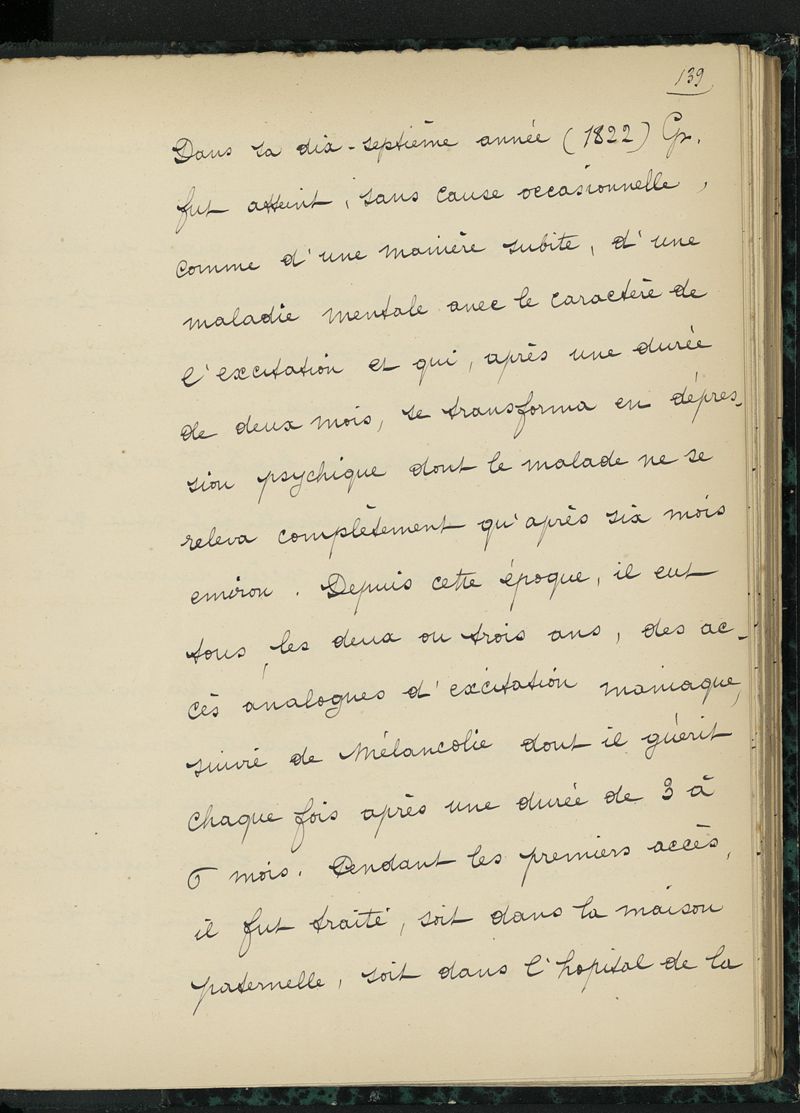 139
Dans sa dix-septième année (1822) Gr.
fut atteint, sans cause occasionnelle,
comme d'une manière subite, d'une
maladie mentale avec le caractère de
l'excitation et qui, après une durée
de deux mois, se transforma en dépres-
sion psychique dont le malade ne se
releva complètement qu'après six mois
environ. Depuis cette époque, il eut
tous les deux ou trois ans, des ac-
cès analogues d'excitation maniaque,
suivie de Mélancolie dont il guérit
chaque fois après une durée de 3 à
6 mois. Pendant les premiers accès,
il fut traité, soit dans la maison
paternelle, soit dans l'hopital de la